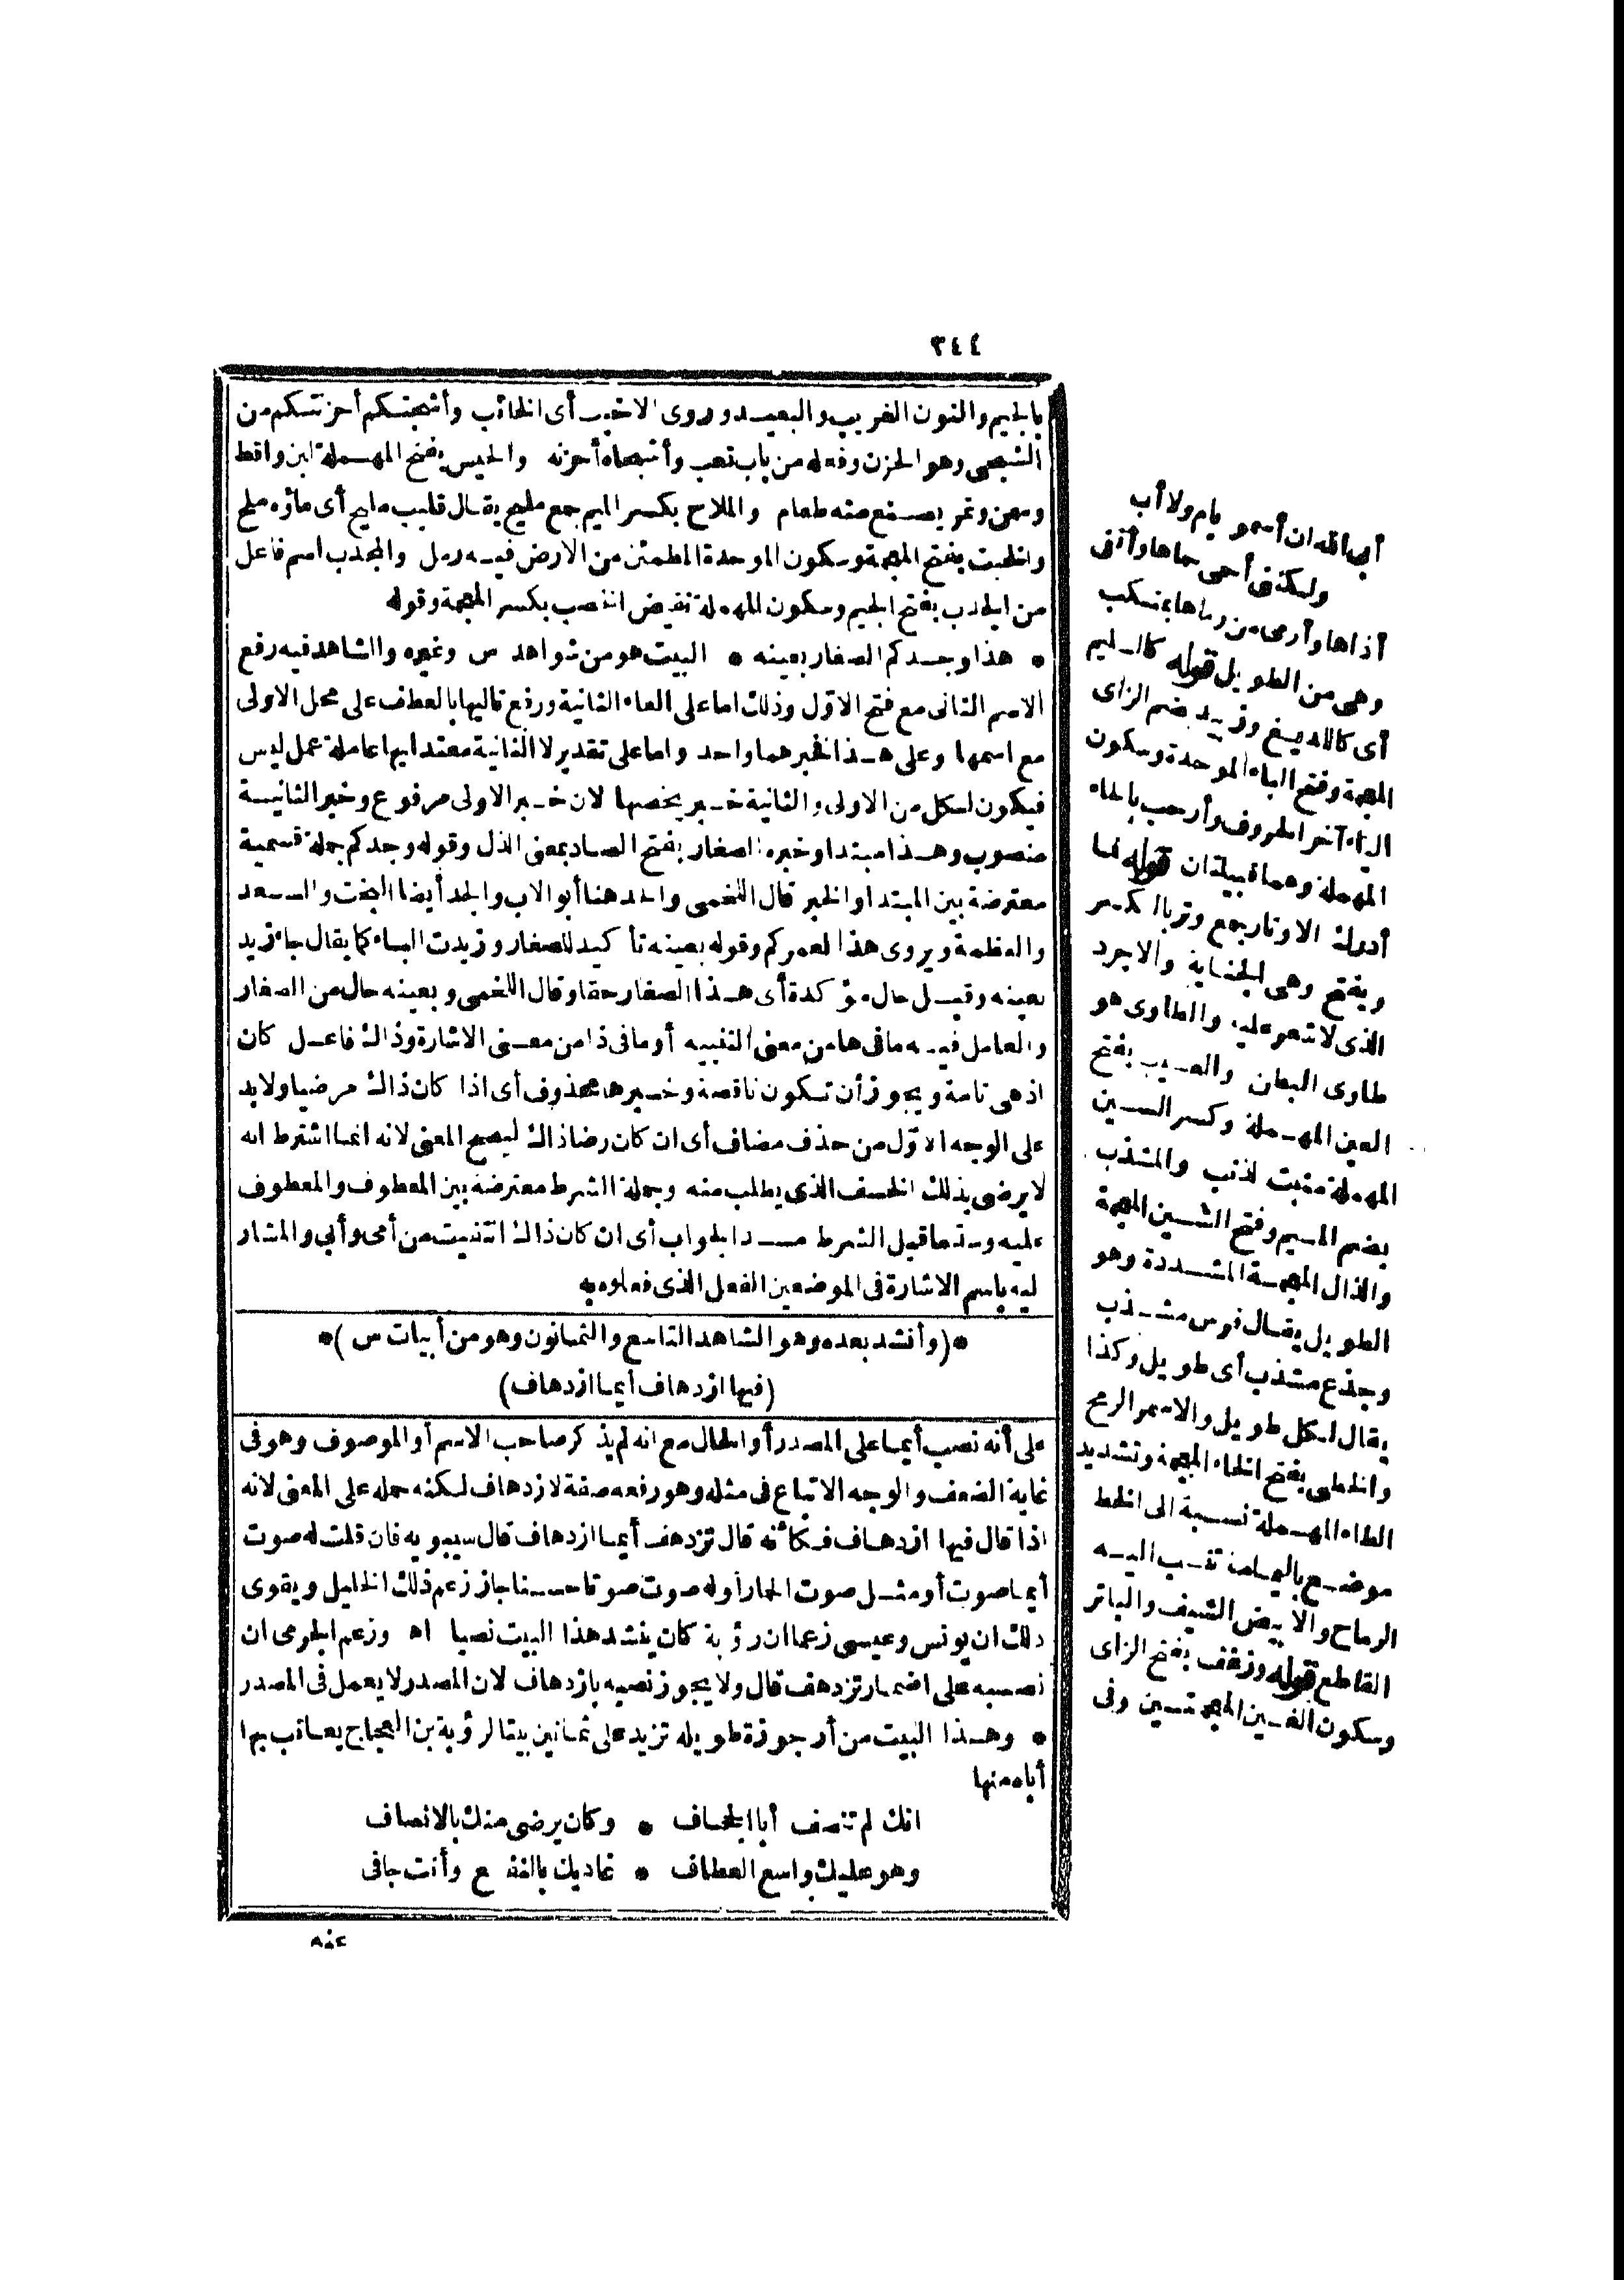 ٢٤٤
بالجيم والنون الغريب والبعيد وروى الاخيب أى الخائب وأشجتكم أحزنتكم من
الشجى وهو الحزن وفعله من باب تعب وأشجاه أحزنه والحيس بفتح المهملة لبن واقط
وسمن وتمر يصنع منه طعام والملاح بكسر الميم جمع مليح يقال قليب مليح أى ماؤه ملح
والخبت بفتح المعجمة وسكون الموحدة المطمئن من الارض فيه رمل والمجدب اسم فاعل
من الجدب بفتح الجيم وسكون المهملة نقيض الخصب بكسر المعجمة وقوله
* هذا وجدكم الصغار بعينه * البيت هو من شواهد س وغيره والشاهد فيه رفع
الاسم الثانى مع فتح الاوّل وذلك اما على الغاء الثانية ورفع تاليها بالعطف على محل الاولى
مع اسمها وعلى هذا فخبرهما واحد واما على تقدير لا الثانية معتدا بها عاملة عمل ليس
فيكون لكل من الاولى والثانية خبر يخصها لان خبر الاولى مرفوع وخبر الثانية
منصوب وهذا مبتدا وخبره الصغار بفتح الصاد بمعنى الذل وقوله وجدكم جملة قسمية
معترضة بين المبتدا والخبر قال اللخمى والجد هنا أبو الاب والجد أيضا البخت والسعد
والعظمة ويروى هذا لعمركم وقوله بعينه تأكيد للصغار وزيدت الباء كما يقال جاء زيد
بعينه وقيل حال مؤكدة أى هذا الصغار حقا وقال اللخمى وبعينه حال من الصغار
والعامل فيه ما فى ها من معنى التنبيه أو ما فى ذا من معنى الاشارة وذاك فاعل كان
اذ هى تامة ويجوز أن تكون ناقصة وخبرها محذوف أى اذا كان ذاك مرضيا ولا بد
على الوجه الاوّل من حذف مضاف أى ان كان رضا ذاك ليصح المعنى لانه انما اشترط انه
لا يرضى بذلك الخسف الذى يطلب منه وجملة الشرط معترضة بين المعطوف والمعطوف
عليه وسدّ ما قبل الشرط مسد الجواب أى ان كان ذاك انتفيت من أمى وأبى والمشار
ليه باسم الاشارة فى الموضعين الفعل الذى فعلوه به
*(وأنشد بعده وهو الشاهد التاسع والثمانون وهو من أبيات س)*
(فيها ازدهاف أيما ازدهاف)
على أنه نصب أيما على المصدر أو الحال مع انه لم يذكر صاحب الاسم أو الموصوف وهو فى
غاية الضعف والوجه الاتباع فى مثله وهو رفعه صفة لازدهاف لكنه حمله على المعنى لانه
اذا قال فيها ازدهاف فكأنه قال تزدهف أيما ازدهاف قال سيبويه فان قلت له صوت
أيما صوت أو مثل صوت الحمار أو له صوت صوتا حسنا جاز زعم ذلك الخليل ويقوى
ذلك ان يونس وعيسى زعما ان رؤبة كان ينشد هذا البيت نصبا اه وزعم الجرمى ان
نصبه على اضمار تزدهف قال ولا يجوز نصبه بازدهاف لان المصدر لا يعمل فى المصدر
* وهذا البيت من أرجوزة طويله تزيد على ثمانين بيتا لرؤبة بن العجاج يعاتب بها
أباه منها
انك لم تنصف أبا الجحاف * وكان يرضى منك بالانصاف
وهو عليك واسع العطاف * غاديك بالنفع وأنت جافى
عنه
أبى الله ان أسمو بام ولا أب
ولكننى أحمى حماها وأتقى
أذاها وأرمى من رماها بمنكب
وهى من الطويل قوله كالسليم
أى كاللديغ وزبيد بضم الزاى
المعجمة وفتح الباء الموحدة وسكون
الياء آخر الحروف وأرحب بالحاء
المهملة وهما قبيلتان قوله فما
أدرك الاوتار جمع وتر بالكسر
ويفتح وهى الجناية والاجرد
الذى لا شعر عليه والطاوى هو
طاوى البطن والعسيب بفتح
العين المهملة وكسر السين
المهملة منبت الذنب والمشذب
بضم الميم وفتح الشين المعجمة
والذال المعجمة المشددة وهو
الطويل يقال فرس مشذب
وجذع مشذب أى طويل وكذا
يقال لكل طويل والاسمر الرمح
والخطى بفتح الخاء المعجمة وتشديد
الطاء المهملة نسبة الى الخط
موضع باليمامة تنسب اليه
الرماح والابيض السيف والباتر
القاطع قوله وزغف بفتح الزاى
وسكون الغين المعجمتين وفى